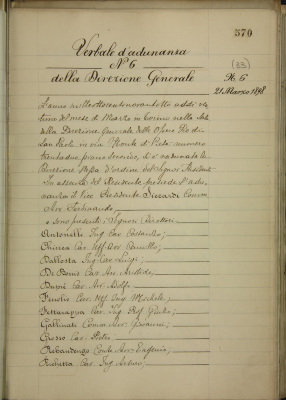 570
Verbale d'adunanza
N° 6
(33)
della Direzione Generale
N. 6
21 Marzo 1898
L'anno milleottocentonovantotto addì ven
tuno del mese di Marzo in Torino nella Sala
della Direzione Generale delle Opere Pie di
San Paolo in via Monte di Pietà numero
trentadue, piano secondo, si è radunata la
Direzione stessa d'ordine del Signor Presidente
In assenza del Presidente presiede l'adu
nanza il Vice Presidente Dinardi Comm.
Avv. Ferdinando
e sono presenti i Signori Direttori
Antonelli Ing. Cav. Costanzo;
Cav. Uff. Avv. Camillo;
Ing. Cav. Luigi;
Cav. Avv.
Cav. Avv. Adolfo
Cav. Uff. Ing. Michele;
Cav. Ing. Prof. Giulio;
Gallinati Comm. Avv. Giovanni;
Grosso Cav. Pietro
Rebaudengo Conte Avv. Eugenio;
Cav. Ing. Arturo;